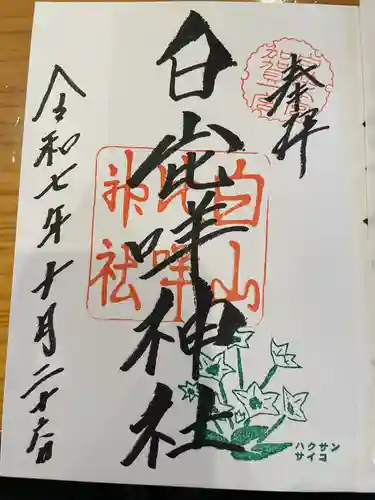 奉拝
白山比咩神社
白山比咩神社
令和七年十月二十六日
ハクサン
サイコ